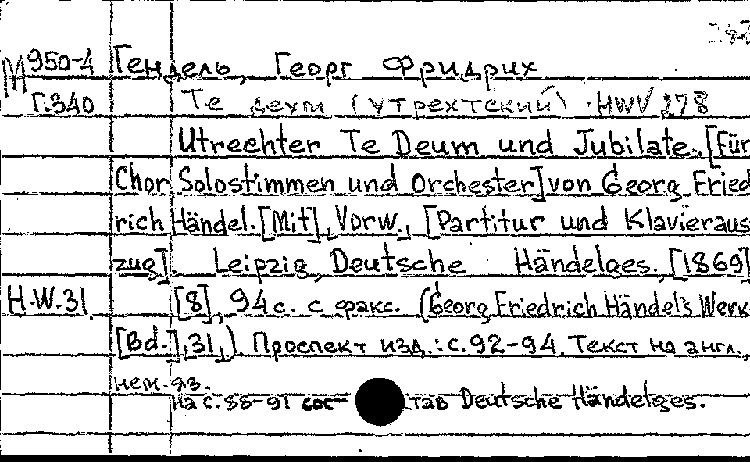 М 950-4 Гендель, Георг Фридрих
Г.340 Те деум (утрехтский) HWV 278
Utrechter Te Deum und Jubilate. [Für
Chor, Solostimmen und Orchester] von Georg Fried
rich Händel. [Mit] Vorw., [Partitur und Klavieraus
zug]. Leipzig, Deutsche Händelges., [1869]
H.W.31. [8], 94 с. с факс. (Georg Friedrich Händel's Werk
[Bd.], 31,) Проспект изд.: с.92-94. Текст на англ.,
нем. яз.
На с.88-91 сос тав Deutsche Händelges.